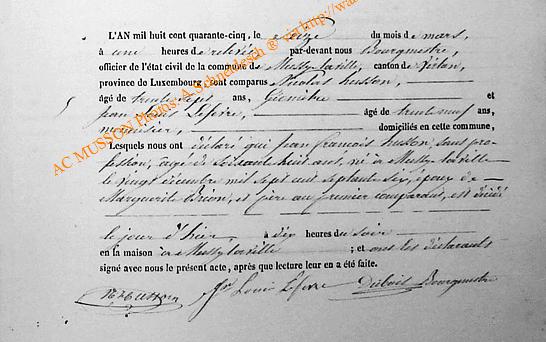 L'AN mil huit cent quarante-cinq, le seize du mois de mars,
à une heures de relevée par-devant nous Bourgmestre,
officier de l'état civil de la commune de Mussy-la-ville, canton de Virton,
province de Luxembourg sont comparus Nicolas husson,
âgé de trente sept ans, Géomètre et
jean Louis Lefevre, âgé de trente neuf ans,
domiciliés en cette commune,
Lesquels nous ont déclaré que jean françois husson, sans pro-
fession, agé de soixante huit ans, né à Mussy la ville
le vingt décembre mil sept cent septante six, époux de
Marguerite Brion, et père au premier comparant, est décédé
le jour d'hier à dix heures du soir
en la maison à Mussy la ville ; et ont les déclarants
signé avec nous le présent acte, après que lecture leur en a été faite.
N Husson Jn Louis Lefevre Dubois Bourgmestre
AC MUSSON Photos: A. Schneidesch © via http://wa